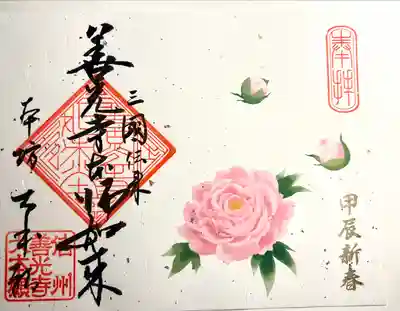 奉拝
甲辰新春
三國伝来
善光寺如来
本坊 大本願
信州
善光寺
大本願